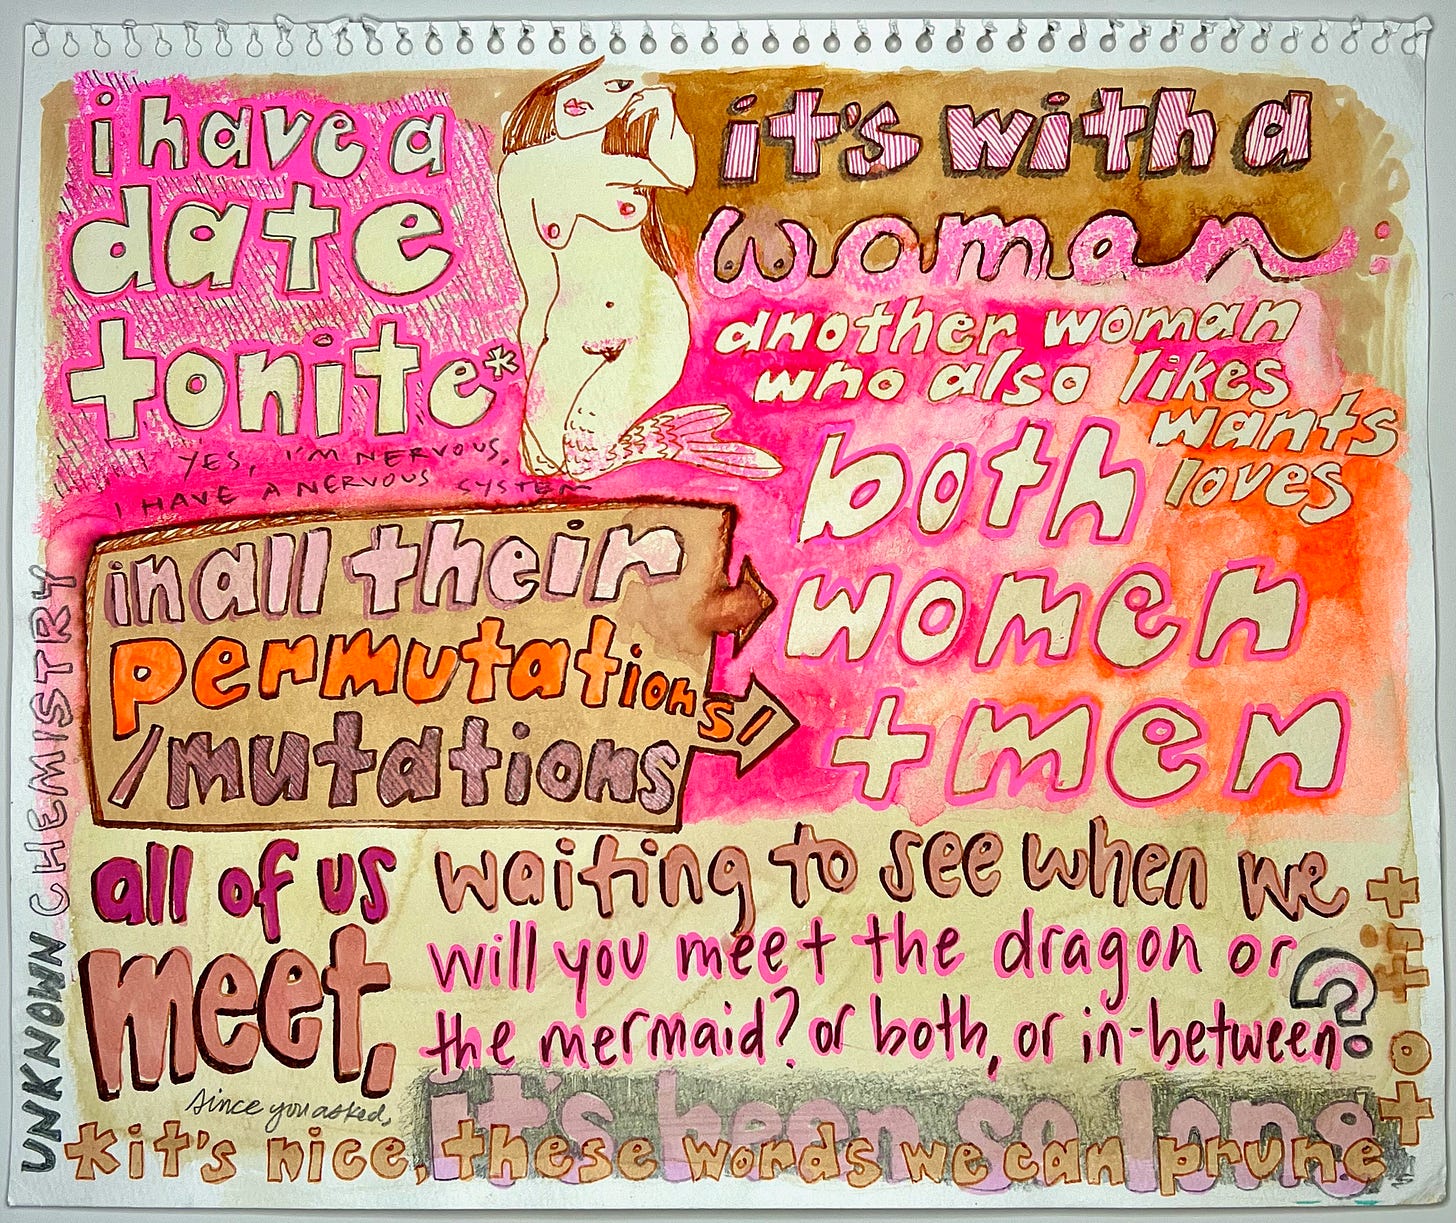 i have a
date
tonite*
YES, I'M NERVOUS,
I HAVE A NERVOUS SYSTEM
it's with a
woman
another woman
who also likes
wants
loves
both
women
+ men
in all their
permutations/
/mutations
all of us
meet,
waiting to see when we
will you meet the dragon or
the mermaid? or both, or in-between?
since you asked,
it's been so long
*it's nice, these words we can prune
+ it ot +
UNKNOWN CHEMISTRY